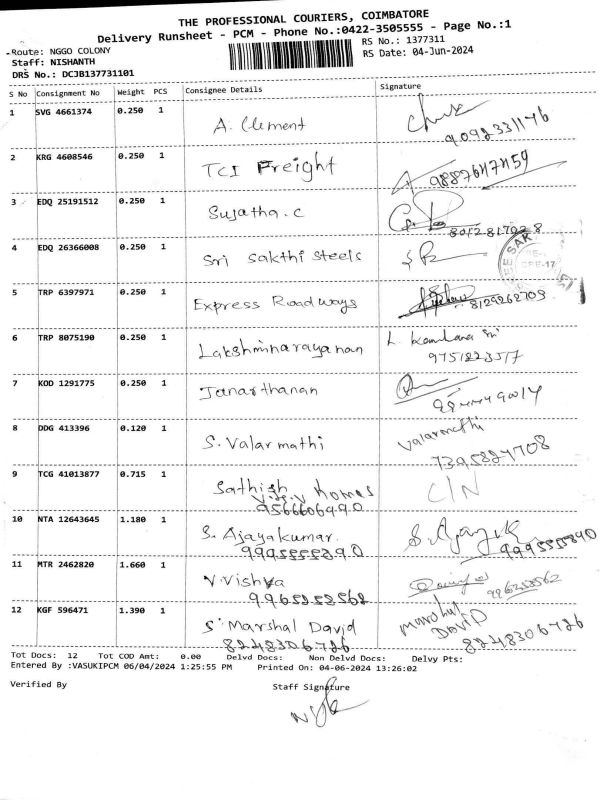 THE PROFESSIONAL COURIERS, COIMBATORE
Delivery Runsheet - PCM - Phone No.:0422-3505555 - Page No.:1
Route: NGGO COLONY RS No.: 1377311
Staff: NISHANTH RS Date: 04-Jun-2024
DRS No.: DCJB137731101
S No Consignment No Weight PCS Consignee Details Signature
1 SVG 4661374 0.250 1 A. Clement
9092331176
2 KRG 4608546 0.250 1 TCI Freight
3 EDQ 25191512 0.250 1 Sujatha.C
4 EDQ 26366008 0.250 1 Sri Sakthi Steels
5 TRP 6397971 0.250 1 Express Roadways 8129262709
6 TRP 8075190 0.250 1 Lakshminarayanan
7 KOD 1291775 0.250 1 Janarthanan
8 DDG 413396 0.120 1 S. Valarmathi Valarmathi
7395827708
9 TCG 41013877 0.715 1 Sathish Homes C/N
9566606990
10 NTA 12643645 1.180 1 S. Ajayakumar.
9995555890 9995555890
11 MTR 2462820 1.660 1 V. Vishva
9965252562
12 KGF 596471 1.390 1 S. Marshal David Marshal David
8248306726 8248306726
Tot Docs: 12 Tot COD Amt: 0.00 Delvd Docs: Non Delvd Docs: Delvy Pts:
Entered By :VASUKIPCM 06/04/2024 1:25:55 PM Printed On: 04-06-2024 13:26:02
Verified By Staff Signature